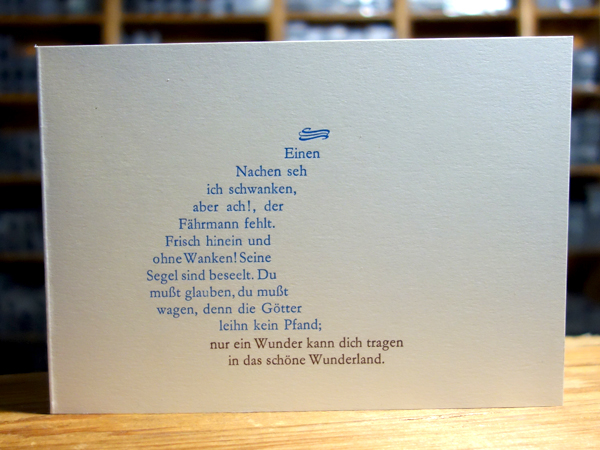 Einen
Nachen seh
ich schwanken,
aber ach!, der
Fährmann fehlt.
Frisch hinein und
ohne Wanken! Seine
Segel sind beseelt. Du
mußt glauben, du mußt
wagen, denn die Götter
leihn kein Pfand;
nur ein Wunder kann dich tragen
in das schöne Wunderland.